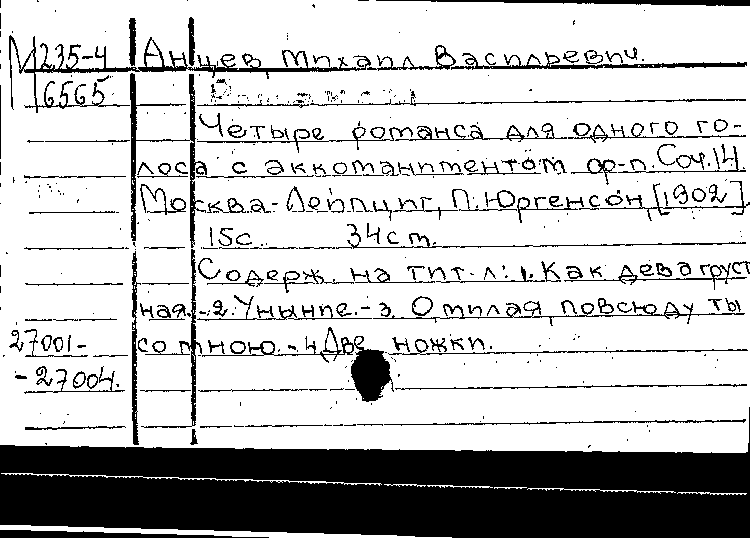 М 235-4 Анцев, Михаил Васильевич.
6565 Романсы
Четыре романса для одного го-
лоса с аккомпаниментом ф-п. Соч. 14.
Москва-Лейпциг, П. Юргенсон, [1902].
15с. 34см.
Содерж. на тит. л: 1. Как дева груст
ная. -2. Уныние. - 3. О, милая, повсюду ты
27001- со мною. - 4. Две ножки.
- 27004.